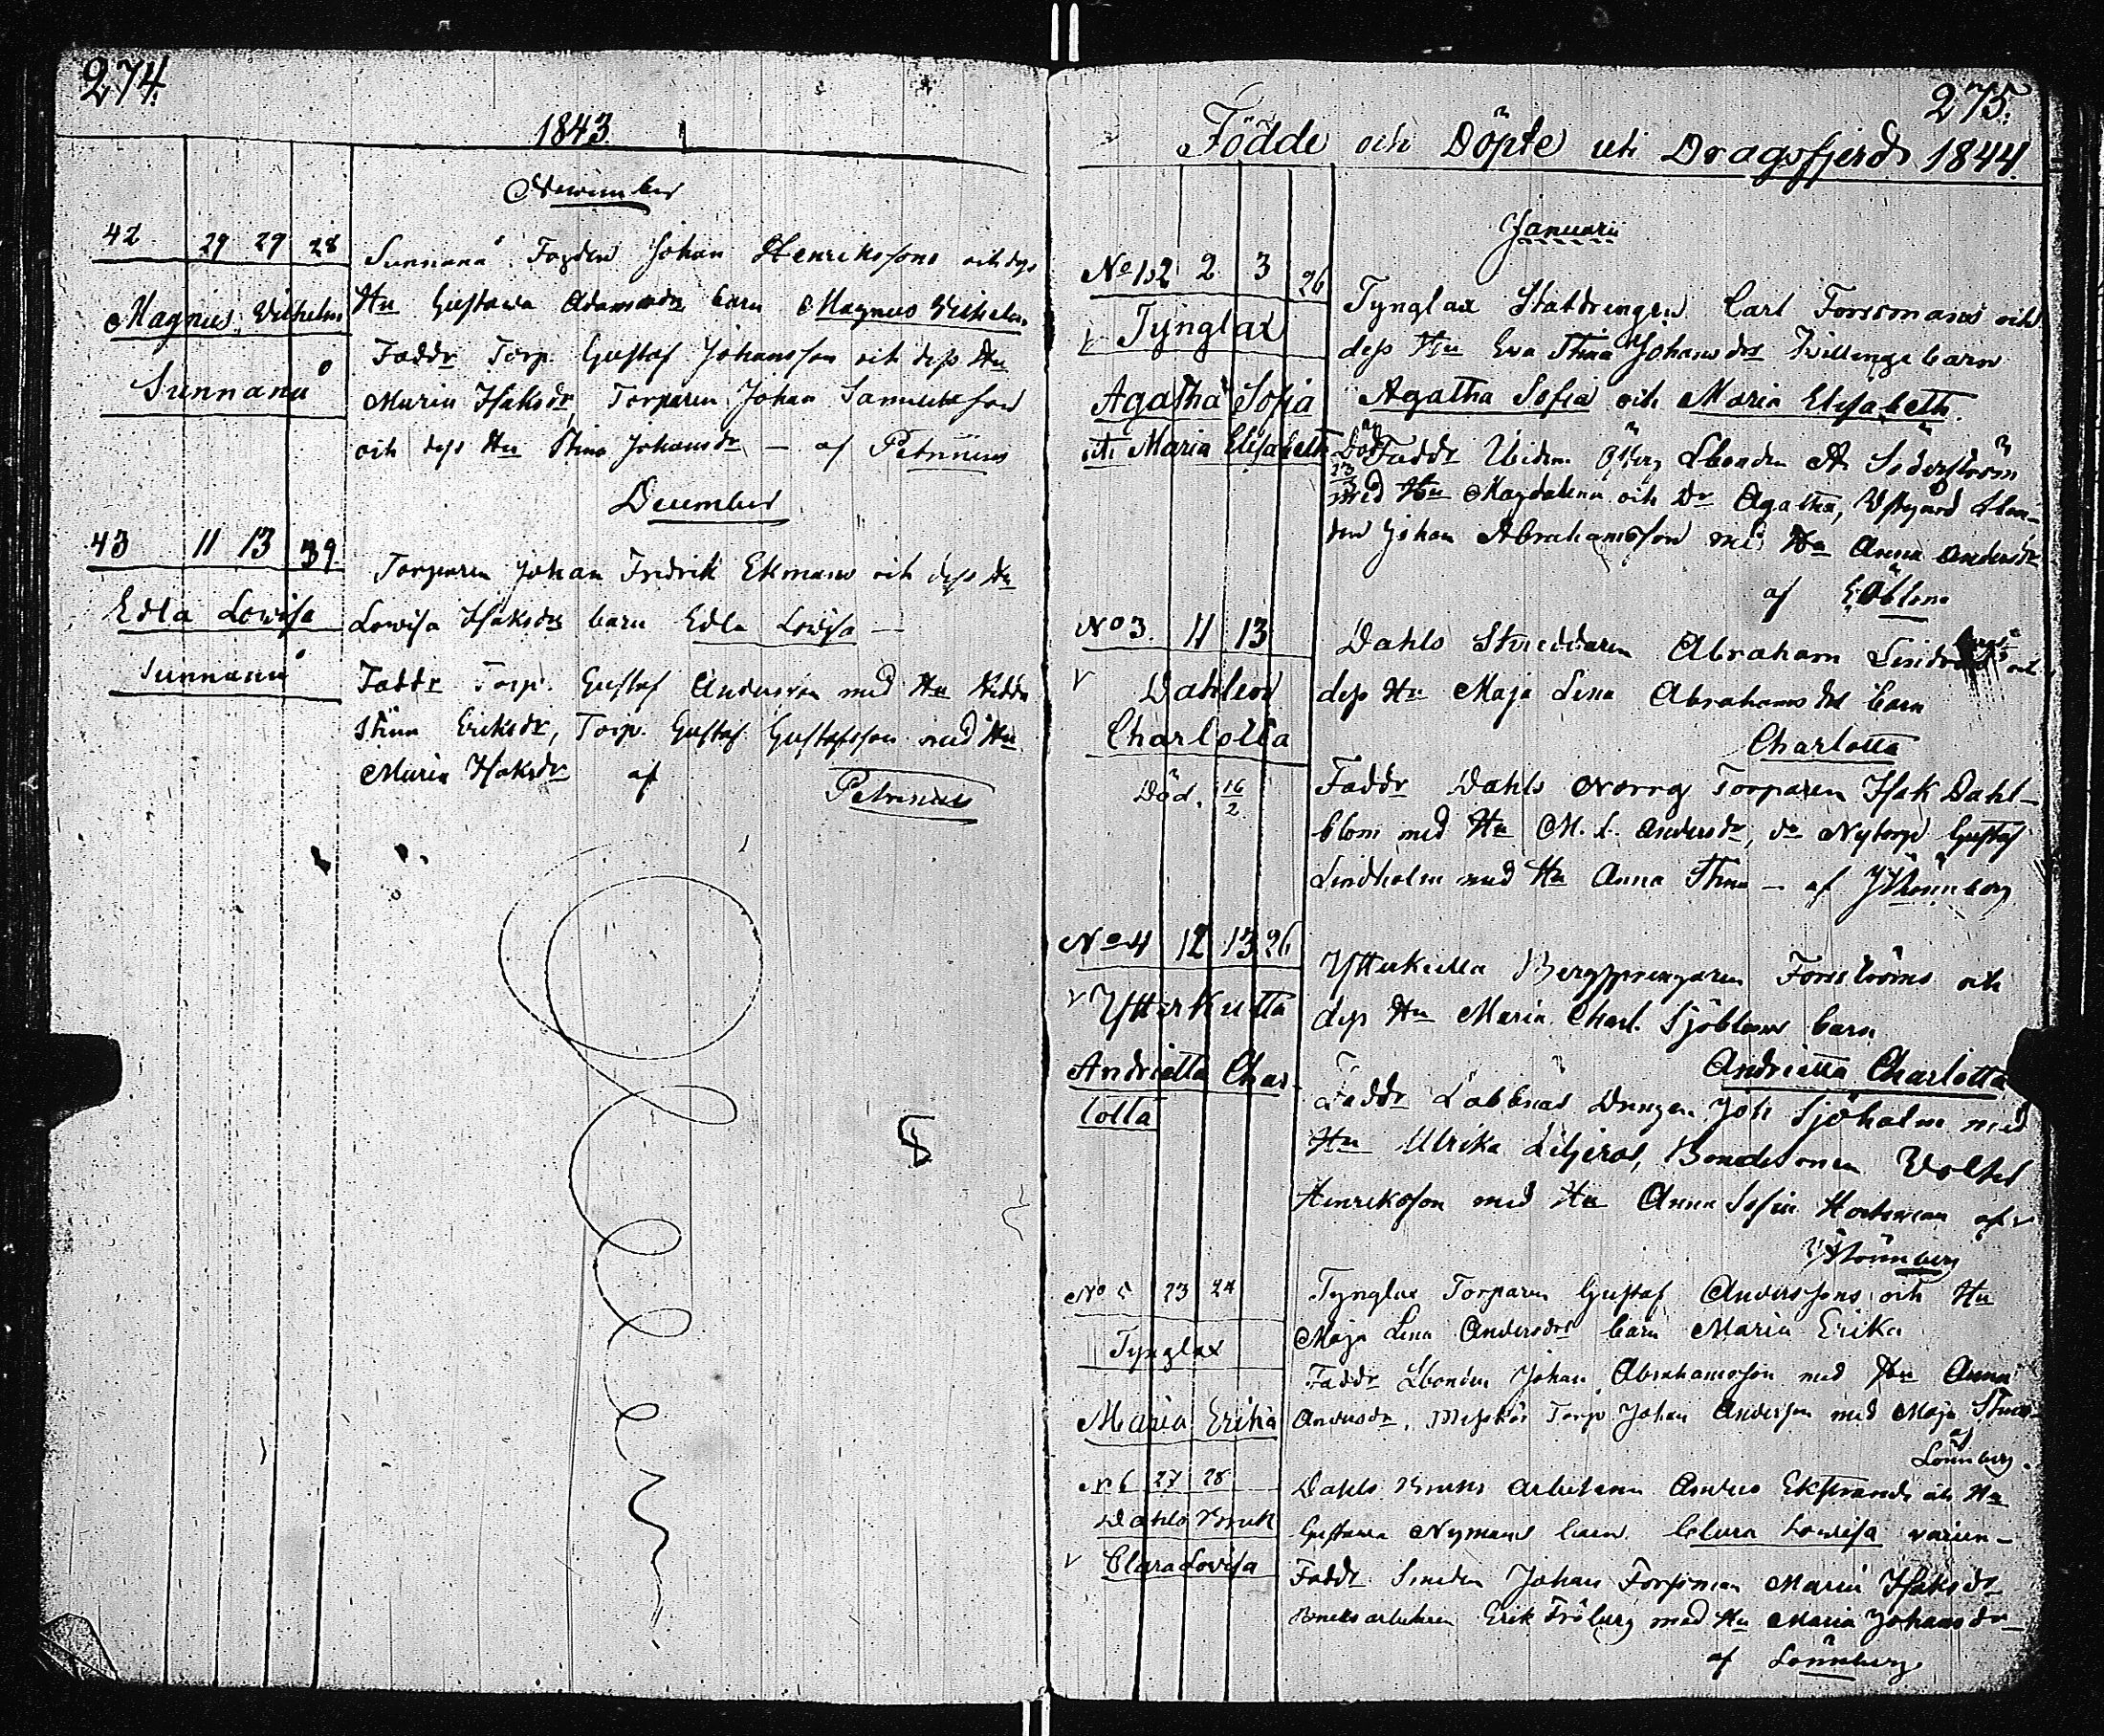 274.
1843.
November
42 29 29 28
Magnus Vilhelm
Sunnanå
Sunnanå Johan Henrikssons och dess
Hu Gustava barn Magnus Vilhelm
Faddr Torp. Gustaf Johansson och dess Hu
Maria Isaksdr, Torparen Johan Samuelsson
och dess Hu Stina Johansdr — af Petrenius
December
43 11 13 39
Edla Lovisa
Sunnanå
Torparen Johan Fredrik Ekmans och dess Hu
Lovisa Isaksdrs barn Edla Lovisa —
Faddr Torp. Gustaf Andersson med Hu Hedda
Stina Eriksdr, Torp. Gustaf Gustafsson med Hu
Maria Isaksdr af
Petrenius
275.
Födde och Döpte uti Dragsfjerd 1844
Januarii
No 1,2 2 3 26
Tynglax
Agatha Sofia
och Maria Elisabeth
Tynglax Statdrengen Carl Forssmans och
dess Hu Eva Stina Johansdrs Tvillinge barn
Agatha Sofia och Maria Elisabeth.
Faddr A Söderström
med Hu Magdalena och Dr Agatha,
Johan Abrahamsson med Hu Anna Andersdr
af
No 3. 11 13
Dahlens
Charlotta
Död. 16/2
Dahls Abraham
dess Hu Maja Lena Abrahamsdrs barn
Charlotta
Faddr Dahls Norrg Torparen Isak Dahl-
blom med Hu M. L. Andersdr, do Nytorp Gustaf
Lindholm med Hu Anna Stina — af
No 4 12 13 26
Ytterkulla
Andrietta Char-
lotta
Ytterkulla Bergsprengaren Forsströms och
dess Hu Maria Charl. Sjöbloms barn
Andrietta Charlotta
Faddr Labbnäs Drengen Joh Sjöholm med
Hu Ulrika Liljeros, Bondesonen
Henriksson med Hu Anna Sofia af
No 5 23 24
Tynglax
Maria Erika
Tynglax Torparen Gustaf Anderssons och Hu
Maja Lena Andersdrs barn Maria Erika
Faddr Lbonden Johan Abrahamsson med Hu Anna
Andersdr, Torp Johan Andersson med Maja Stina
af
Lönnberg.
No 6 27 28
Dahls Bruk
Clara Lovisa
Dahls Bruks Arbetaren Anders Ekstrands och Hu
Gustava Nymans barn Clara Lovisa
Faddr Smeden Johan Forsman Maria Isaksdr
Bruksarbetaren Erik Fröberg med Hu Maria Johansdr
af Lönnberg